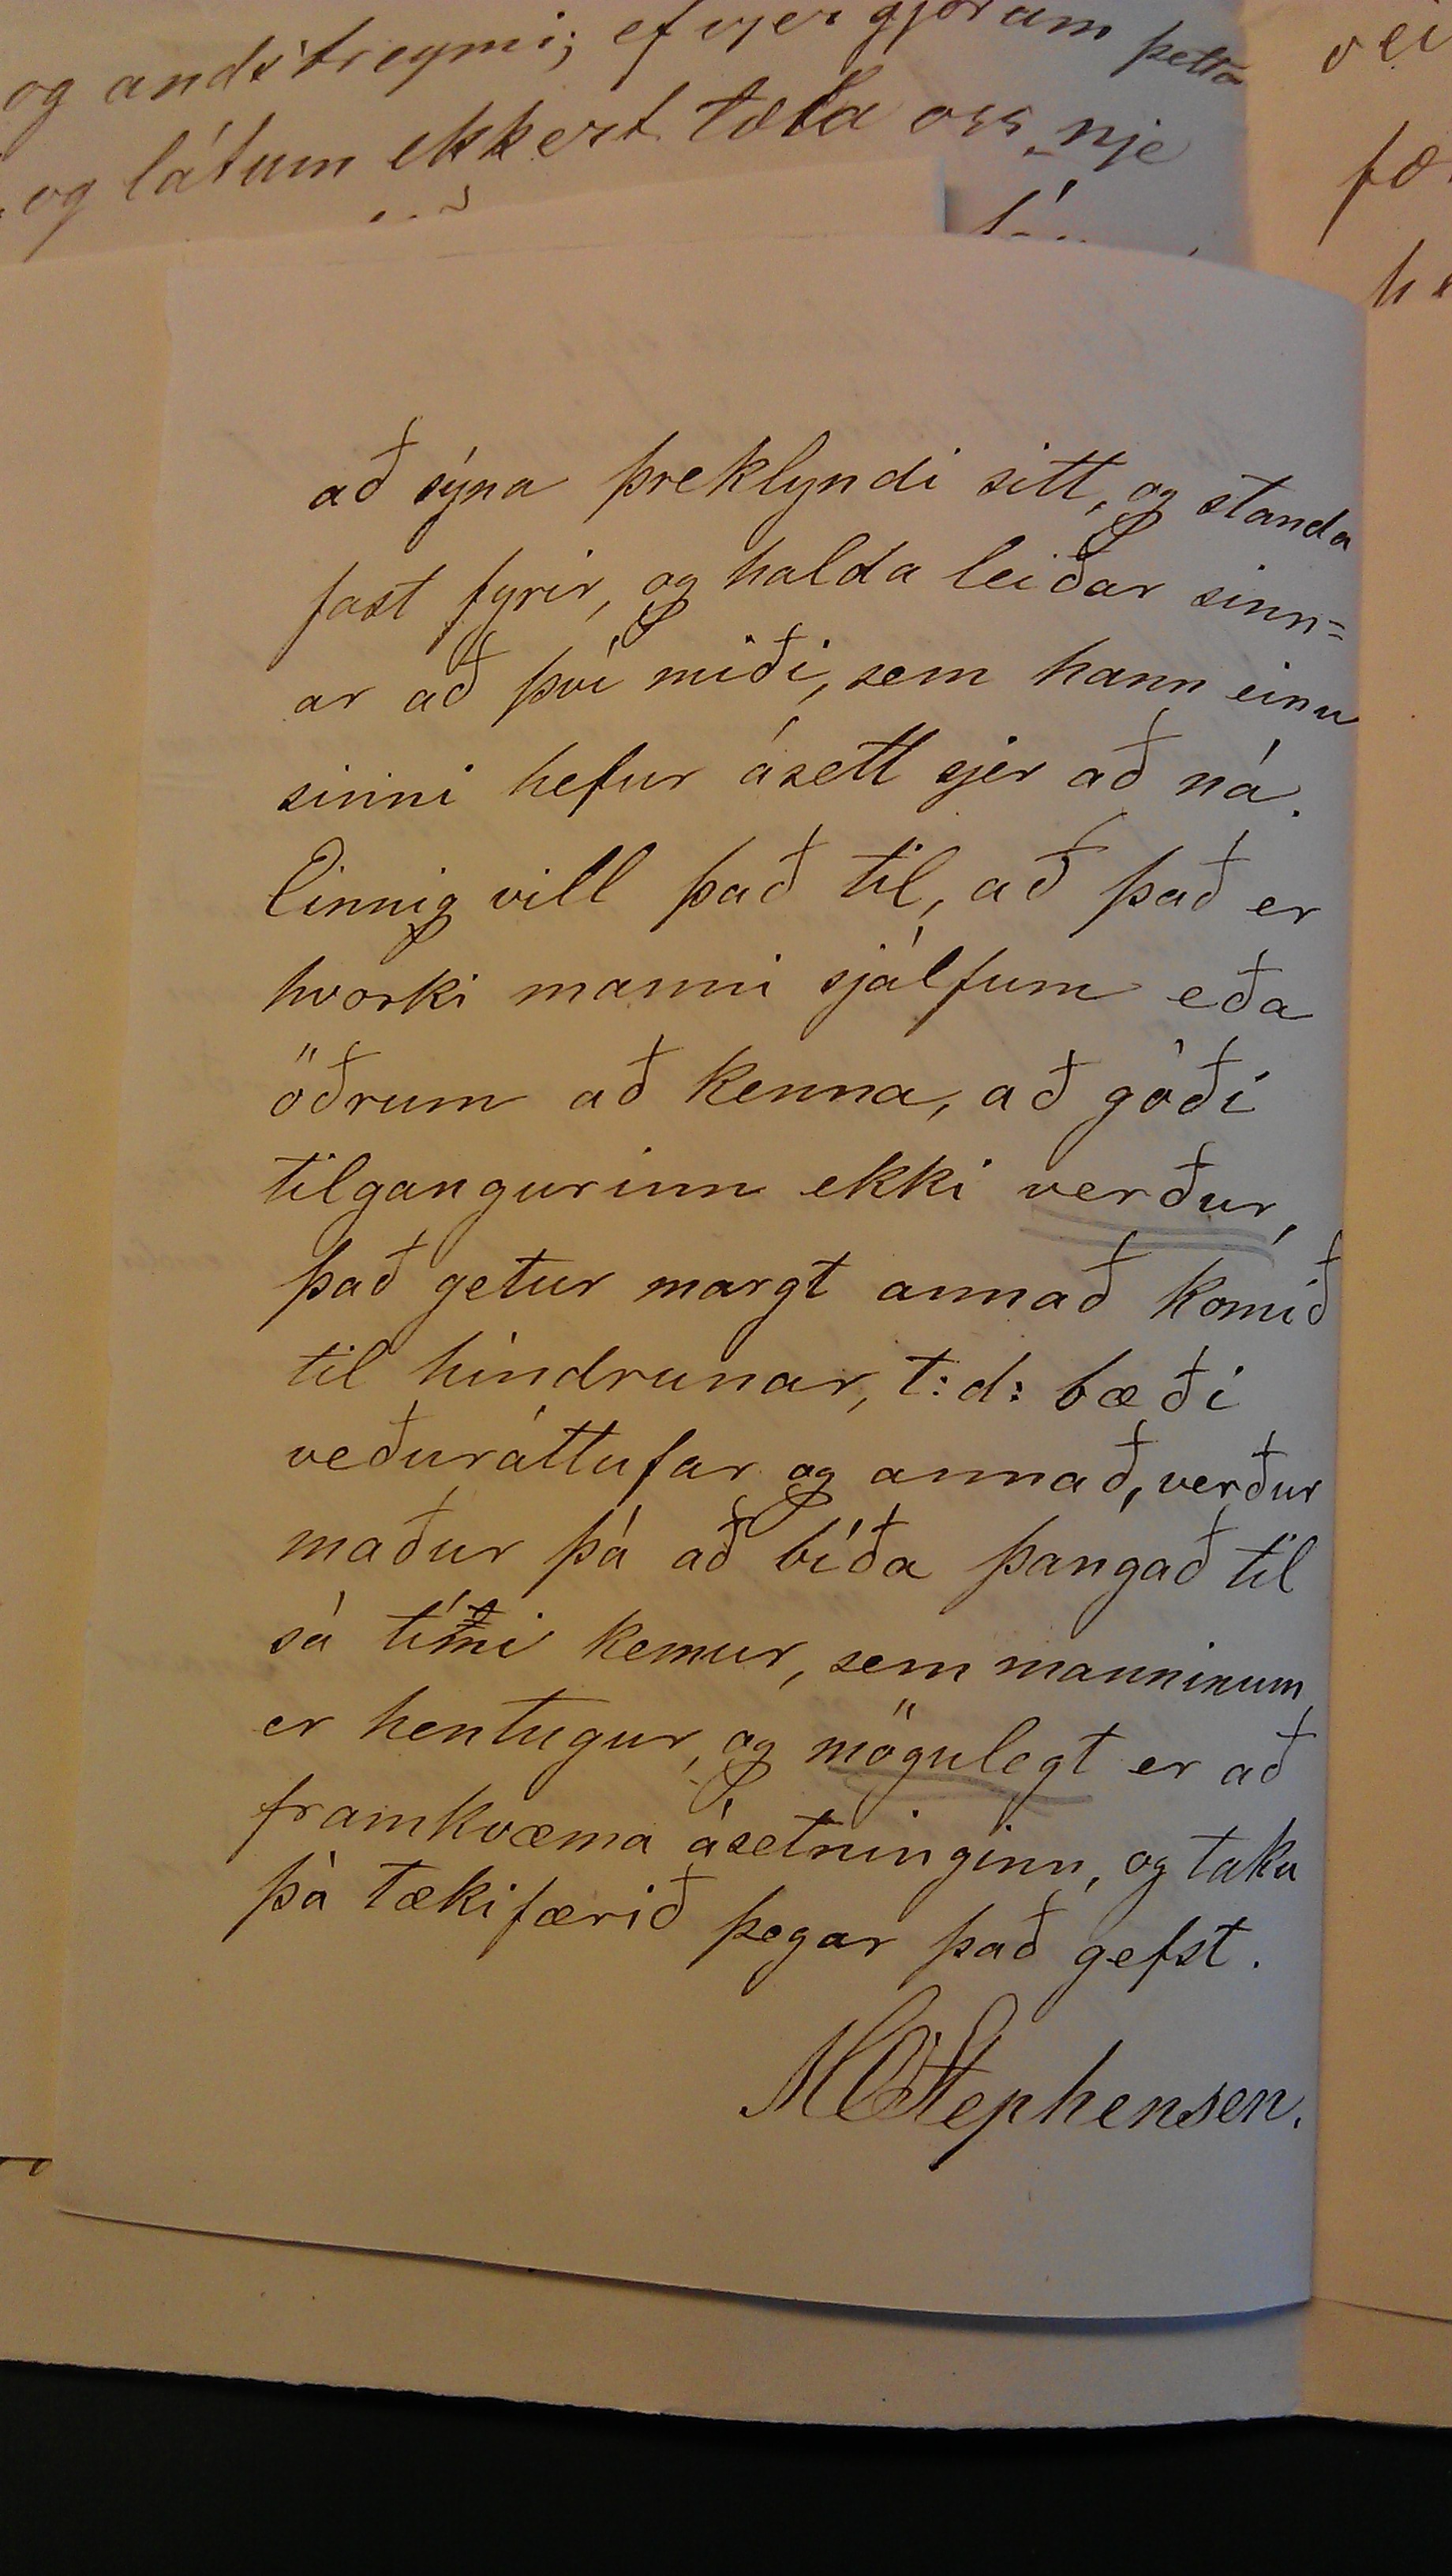 og andstreymi; ef vjer gjörum þetta
og látum ekkert tæla oss, nje
að sýna þreklyndi sitt, og standa
fast fyrir, og halda leiðar sinn=
ar að því miði, sem hann einu
sinni hefur ásett sjer að ná.
Einnig vill það til, að það er
hvorki manni sjálfum eða
öðrum að kenna, að góði
tilgangurinn ekki verður,
það getur margt annað komið
til hindrunar, t:d: bæði
veðuráttufar og annað, verður
maður þá að bíða þangað til
sá tími kemur, sem manninum
er hentugur, og mögulegt er að
framkvæma ásetninginn, og taka
þá tækifærið þegar það gefst.
MStephensen.